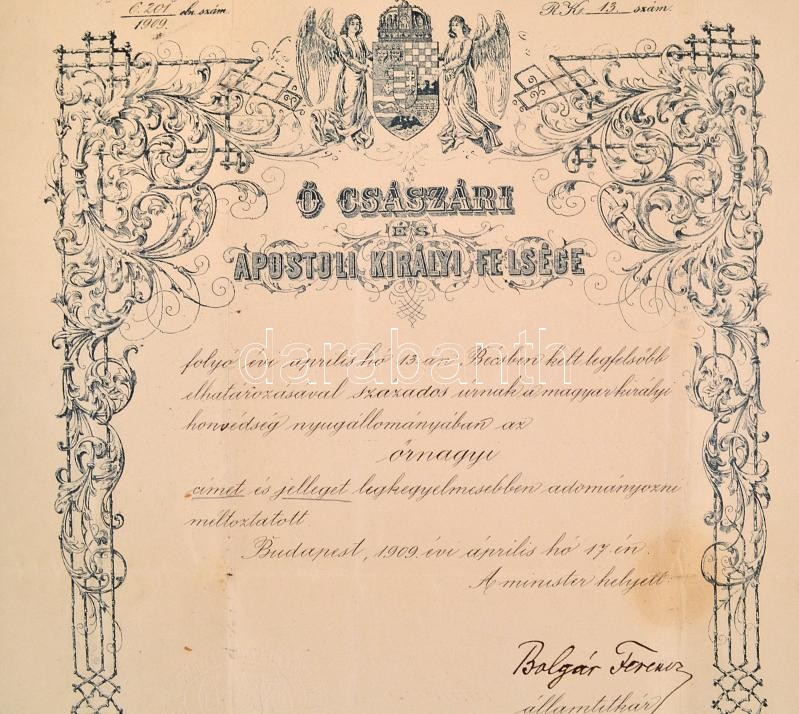 C. 201 eln. szám.
1909.
R.K. 13. szám.
Ő CSÁSZÁRI
ÉS
APOSTOLI KIRÁLYI FELSÉGE
folyó évi április hó 13.-án Bécsben kelt legfelsőbb
elhatározásával százados úrnak a magyar királyi
honvédség nyugállományában az
őrnagyi
címet és jelleget legkegyelmesebben adományozni
méltóztatott.
Budapest, 1909. évi április hó 17-én.
A minister helyett
Bolgár Ferencz
államtitkár
darabanth